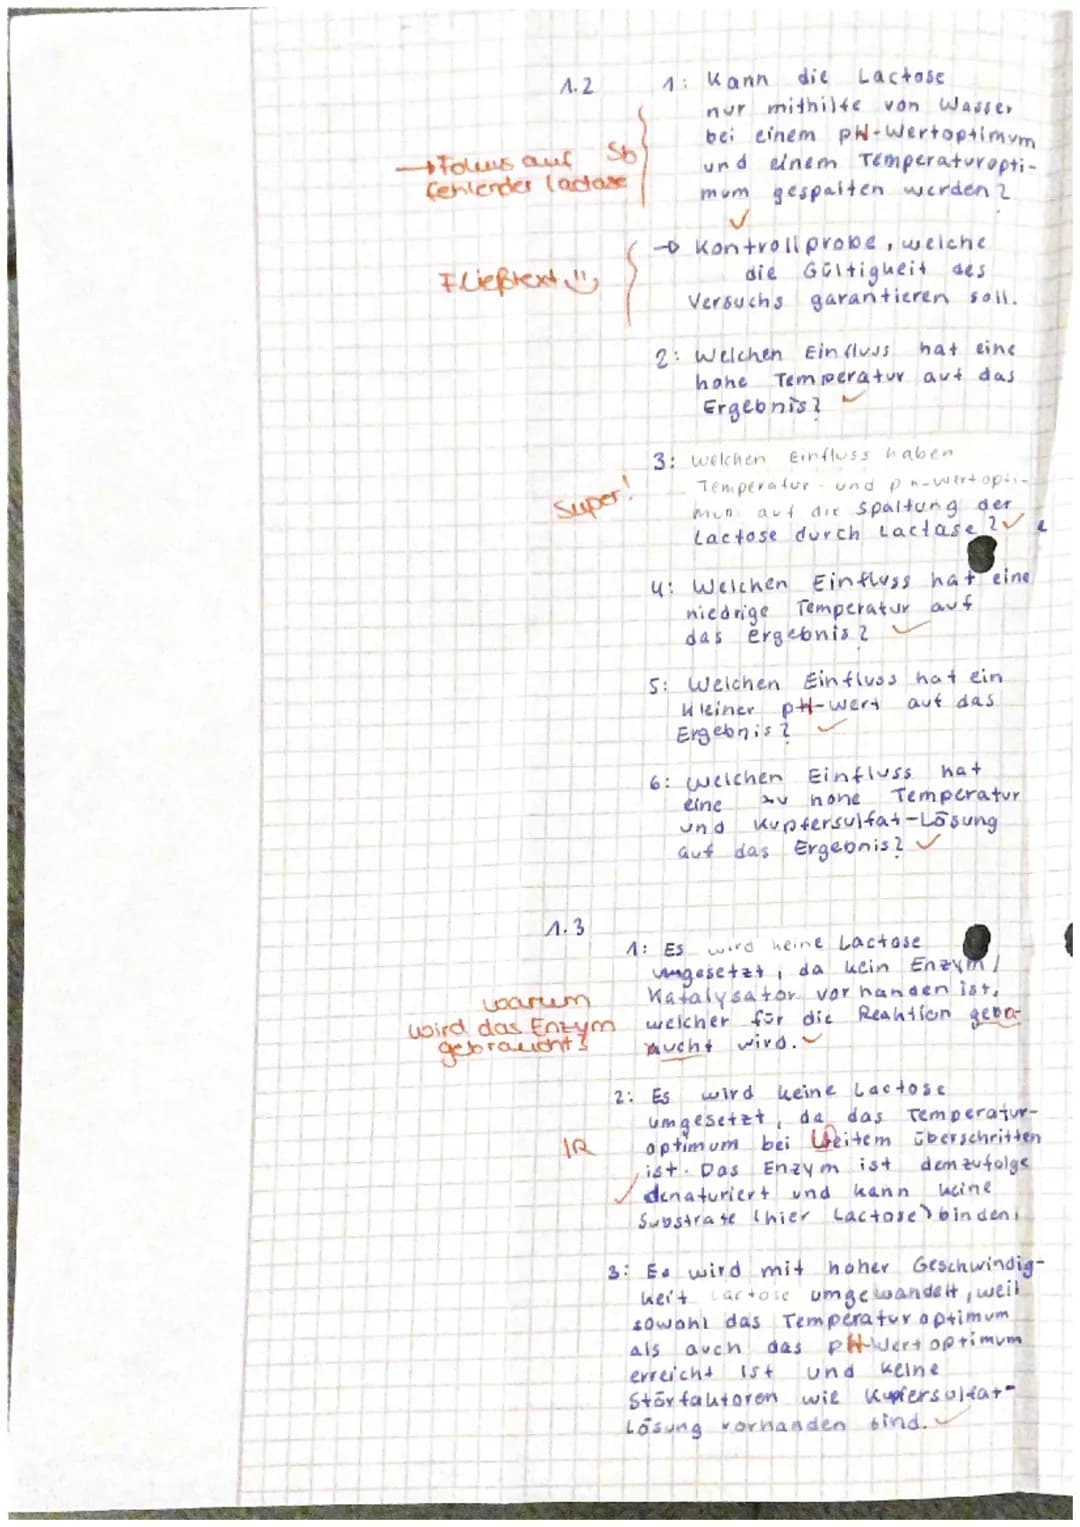 1.2
1: Kann die Lactose
nur mithilfe von Wasser
bei einem pH-Wertoptimum
und einem Temperaturopti-
mum gespalten werden?
→ Fokus auf Sb
fehlender Lactase
→ Kontrollprobe, welche
die Gültigkeit des
Versuchs garantieren soll.
Fließtext
2: Welchen Einfluss hat eine
hohe Temperatur auf das
Ergebnis?
3: Welchen Einfluss haben
Temperatur- und pH-Wertopti-
Super!
auf die Spaltung der
Lactose durch Lactase?
e
4: Welchen Einfluss hat eine
niedrige Temperatur auf
das Ergebnis?
5: Welchen Einfluss hat ein
kleiner pH-Wert auf das
Ergebnis?
6: Welchen Einfluss hat
eine zu hohe Temperatur
und Kupfersulfat-Lösung
auf das Ergebnis?
1.3
1: Es wird keine Lactose
umgesetzt, da kein Enzym/
Katalysator vorhanden ist,
welcher für die Reaktion gebra-
ucht wird.
warum
wird das Enzym
gebraucht?
2: Es wird keine Lactose
umgesetzt, da das Temperatur-
optimum bei Weitem überschritten
IR
ist. Das Enzym ist demzufolge
denaturiert und kann keine
Substrate (hier Lactose) binden.
3: Es wird mit hoher Geschwindig-
keit Lactose umgewandelt, weil
sowohl das Temperaturoptimum
als auch das pH-Wertoptimum
erreicht ist und keine
Störfaktoren wie Kupfersulfat-
Lösung vorhanden sind.